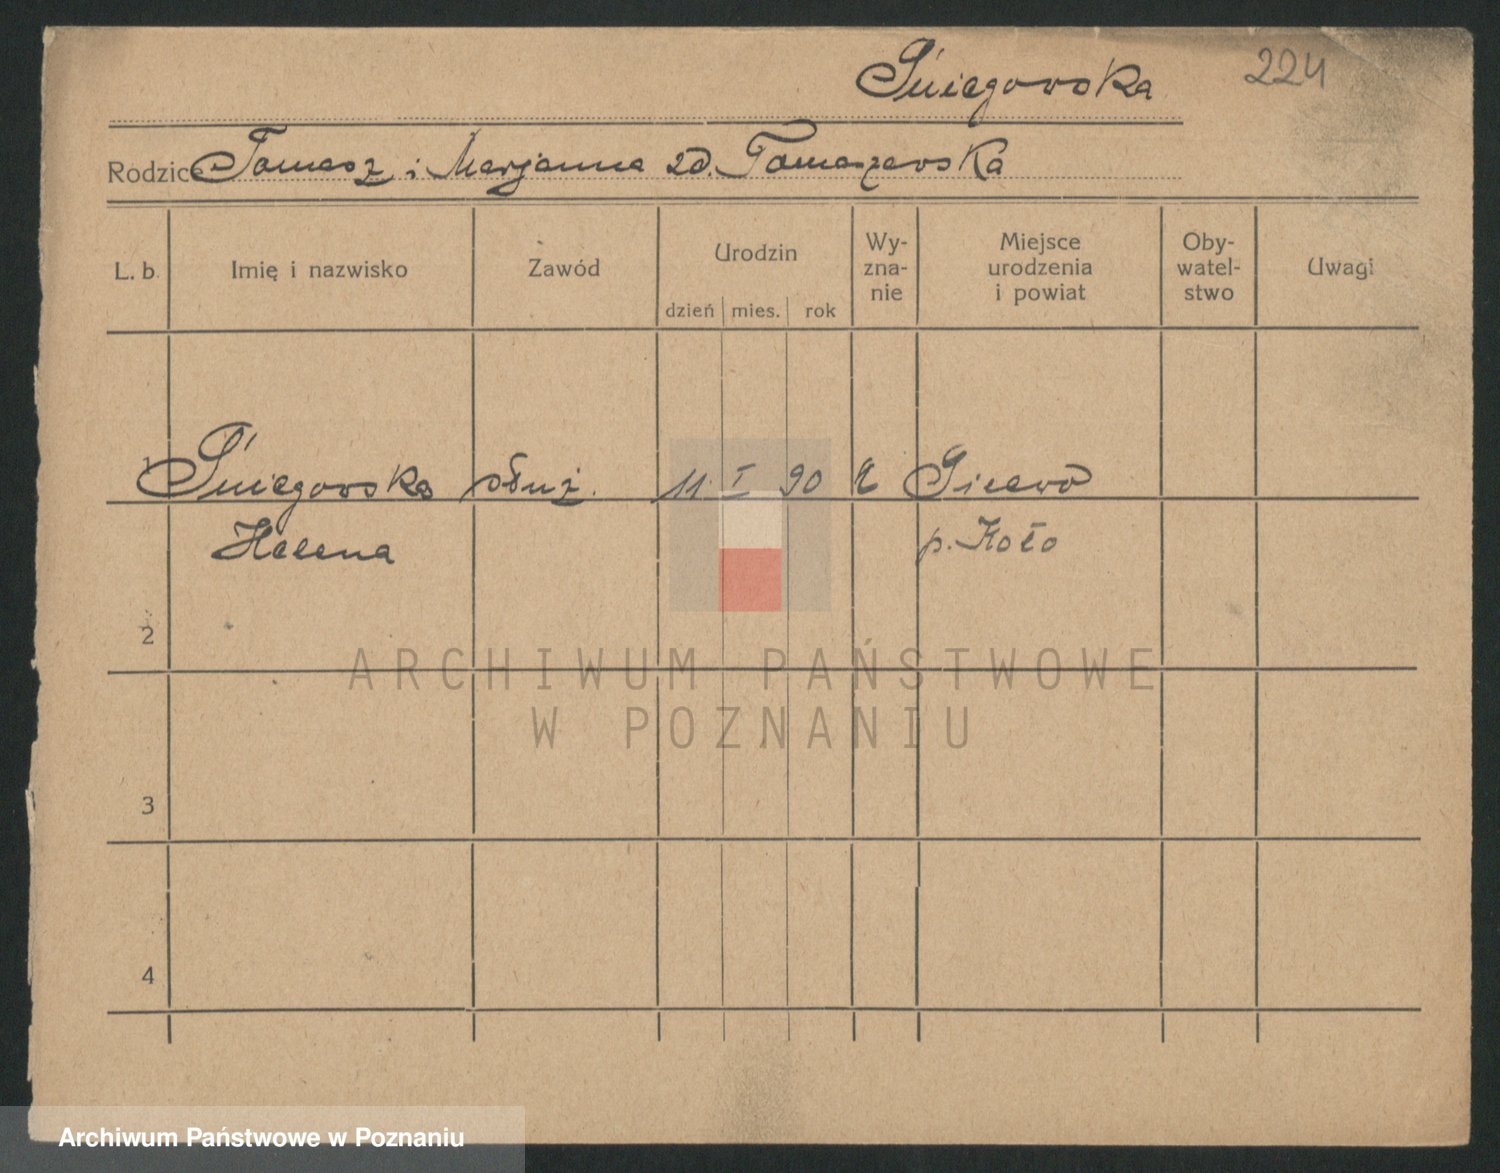 Śniegowska 224
Rodzice Tomasz i Marjanna zd. Tomaszewska
L. b. Imię i nazwisko Zawód Urodzin Wy-zna-nie Miejsce urodzenia i powiat Oby-watel-stwo Uwagi
dzień mies. rok
1 Śniegowska służ. 11 I 90
Helena p. Koło
2
ARCHIWUM PAŃSTWOWE
W POZNANIU
3
4
Archiwum Państwowe w Poznaniu